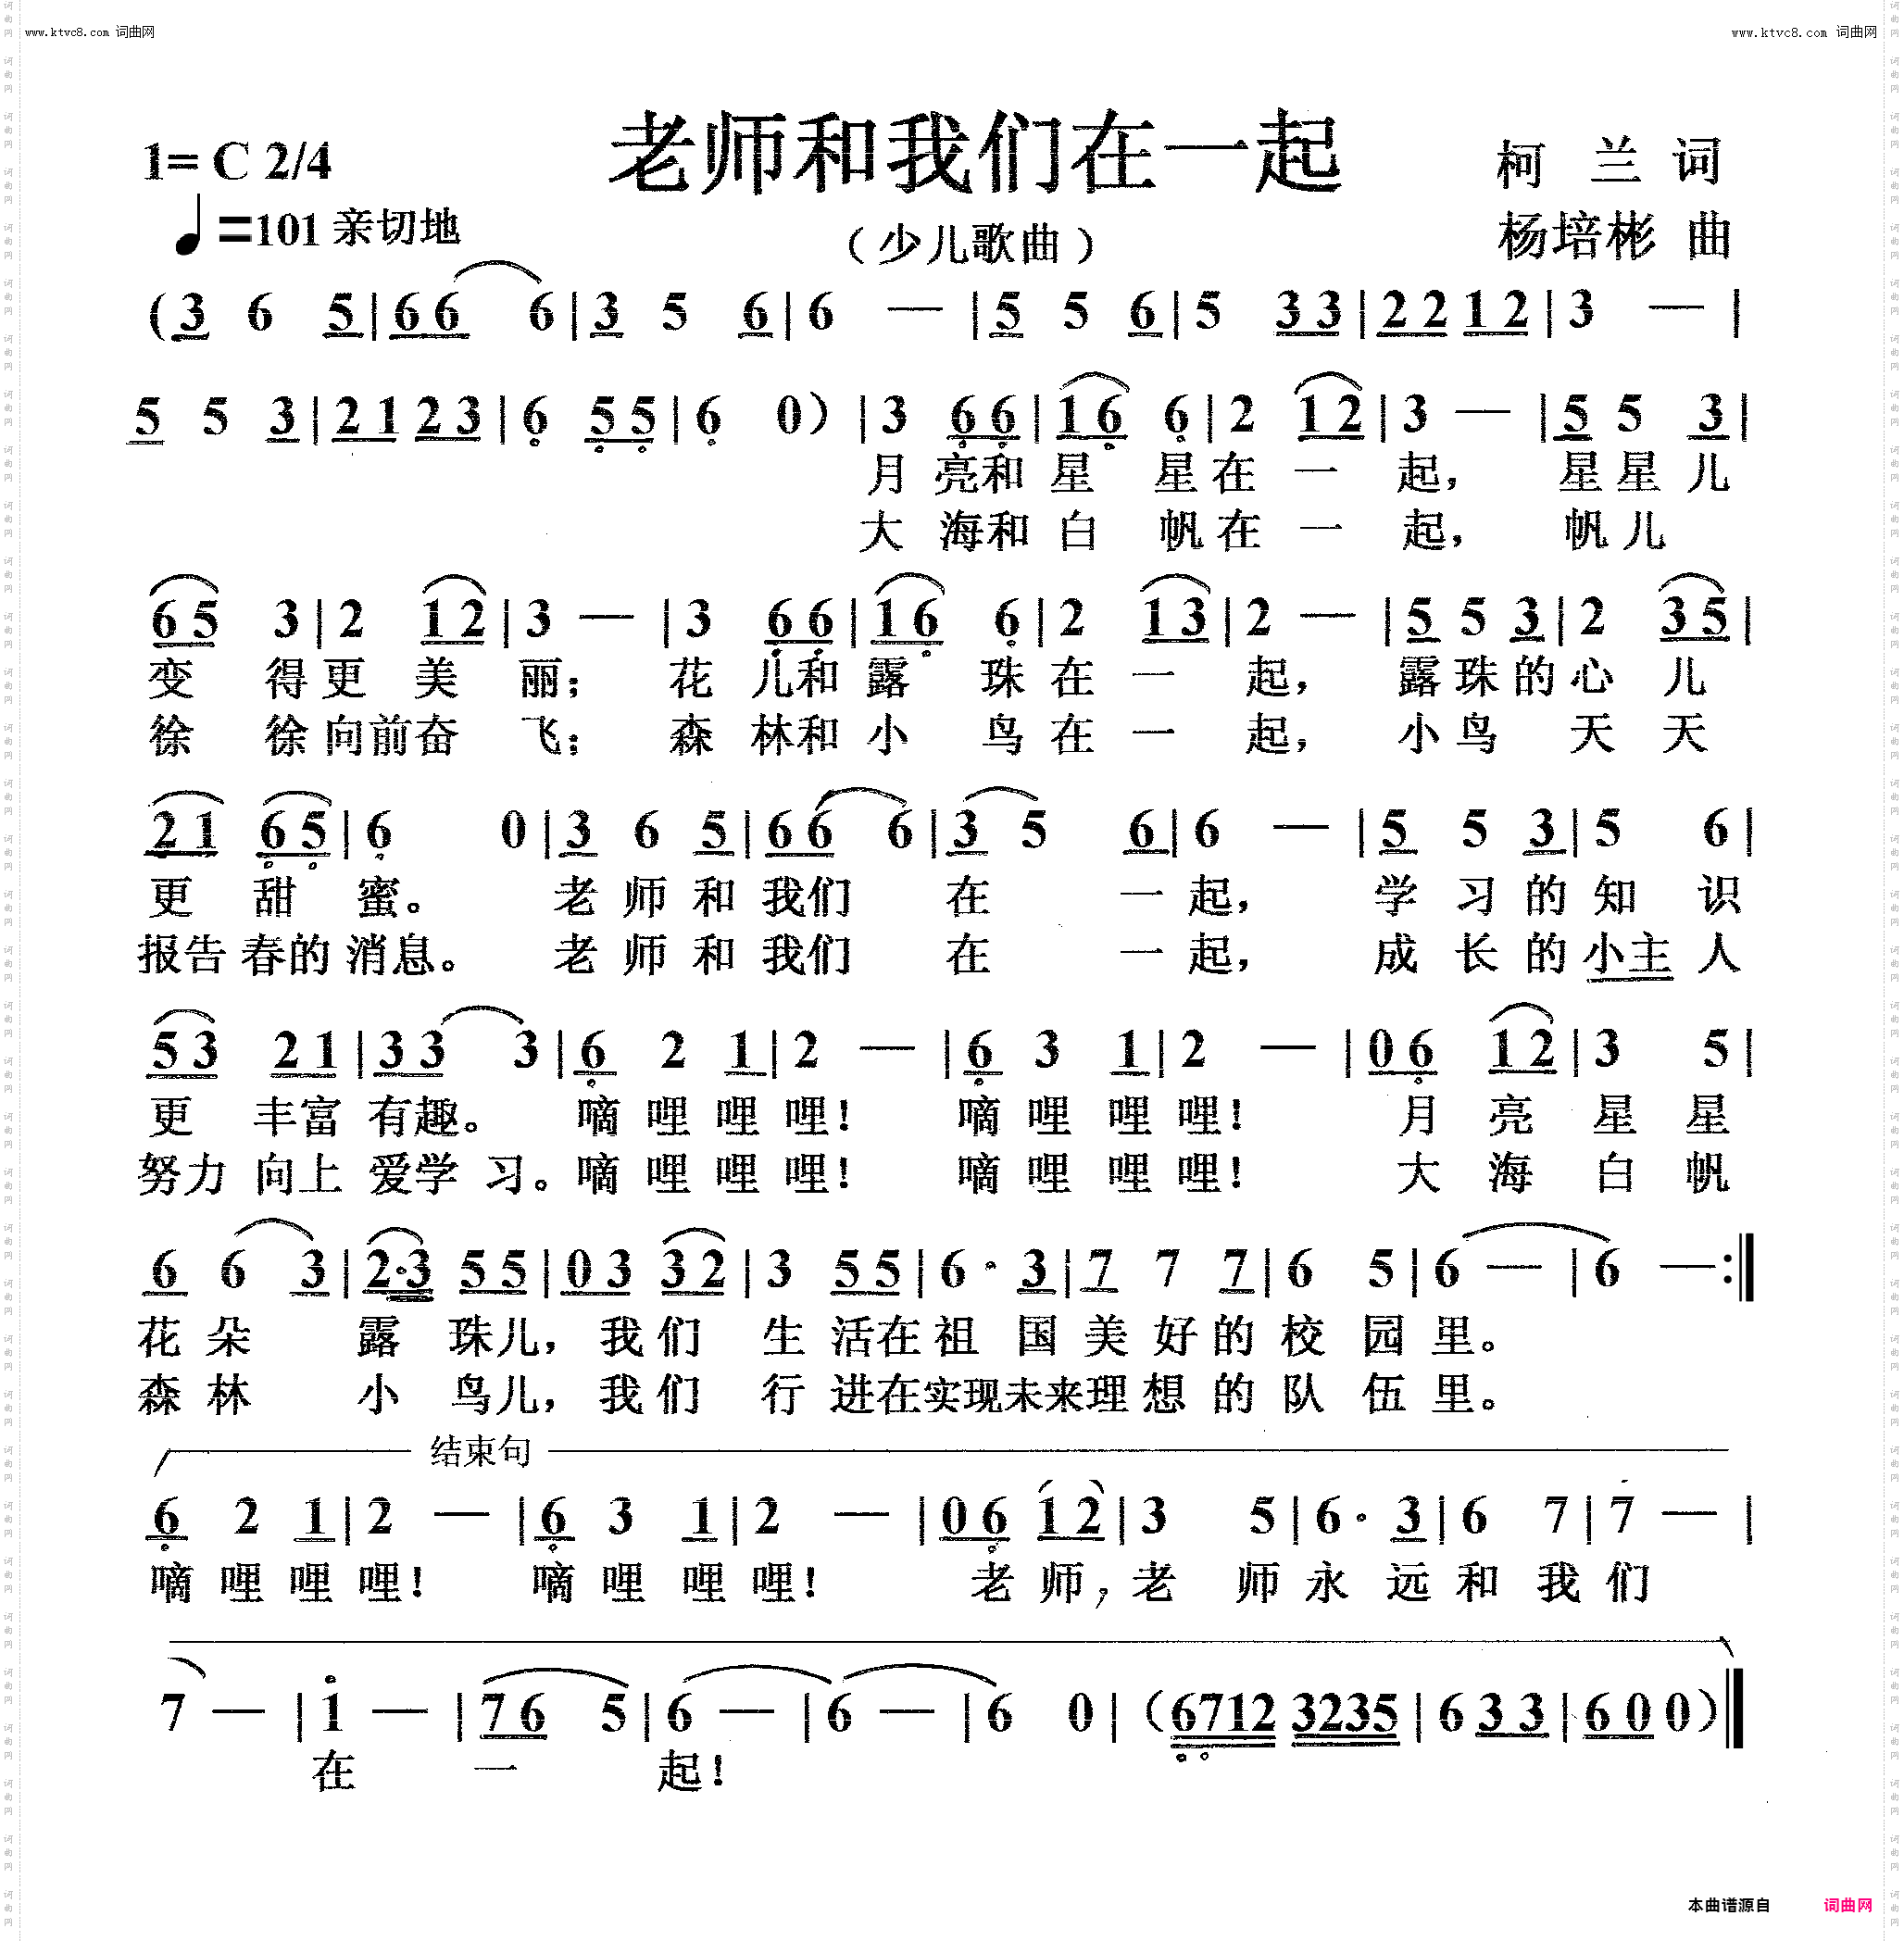 www.ktvc8.com 词曲网
www.ktvc8.com 词曲网
老师和我们在一起
1= C 2/4
柯 兰 词
=101 亲切地
(少儿歌曲)
杨培彬 曲
(3 6 5|66 6|3 5 6|6 — |5 5 6|5 33|22 12|3 — |
5 5 3|21 23|6 55|6 0) |3 66|16 6|2 12|3 — |5 5 3|
月 亮和 星 星 在 一 起, 星 星 儿
大 海和 白 帆 在 一 起, 帆 儿
65 3|2 12|3 — |3 66|16 6|2 13|2 — |5 5 3|2 35|
变 得 更 美 丽; 花 儿和 露 珠 在 一 起, 露 珠 的 心 儿
徐 徐 向前 奋 飞; 森 林和 小 鸟 在 一 起, 小 鸟 天 天
21 65|6 0|3 6 5|66 6|3 5 6|6 — |5 5 3|5 6|
更 甜 蜜。 老 师 和 我们 在 一 起, 学 习 的 知 识
报告 春的 消息。 老 师 和 我们 在 一 起, 成 长 的 小主 人
53 21|33 3|6 2 1|2 — |6 3 1|2 — |06 12|3 5|
更 丰富 有趣。 嘀 哩 哩 哩! 嘀 哩 哩 哩! 月 亮 星 星
努力 向上 爱学 习。嘀 哩 哩 哩! 嘀 哩 哩 哩! 大 海 白 帆
6 6 3|2·3 55|03 32|3 55|6· 3|7 7 7|6 5|6 — |6 —:‖
花 朵 露 珠儿, 我 们 生 活在 祖 国 美 好 的 校 园 里。
森 林 小 鸟儿, 我 们 行 进在 实现未来理 想 的 队 伍 里。
结束句
6 2 1|2 — |6 3 1|2 — |06 12|3 5|6· 3|6 7|7 — |
嘀 哩 哩 哩! 嘀 哩 哩 哩! 老 师, 老 师 永 远 和 我 们
7 — |1 — |76 5|6 — |6 — |6 0|(6712 3235|6 33|60 0)‖
在 一 起!
本曲谱源自 词曲网